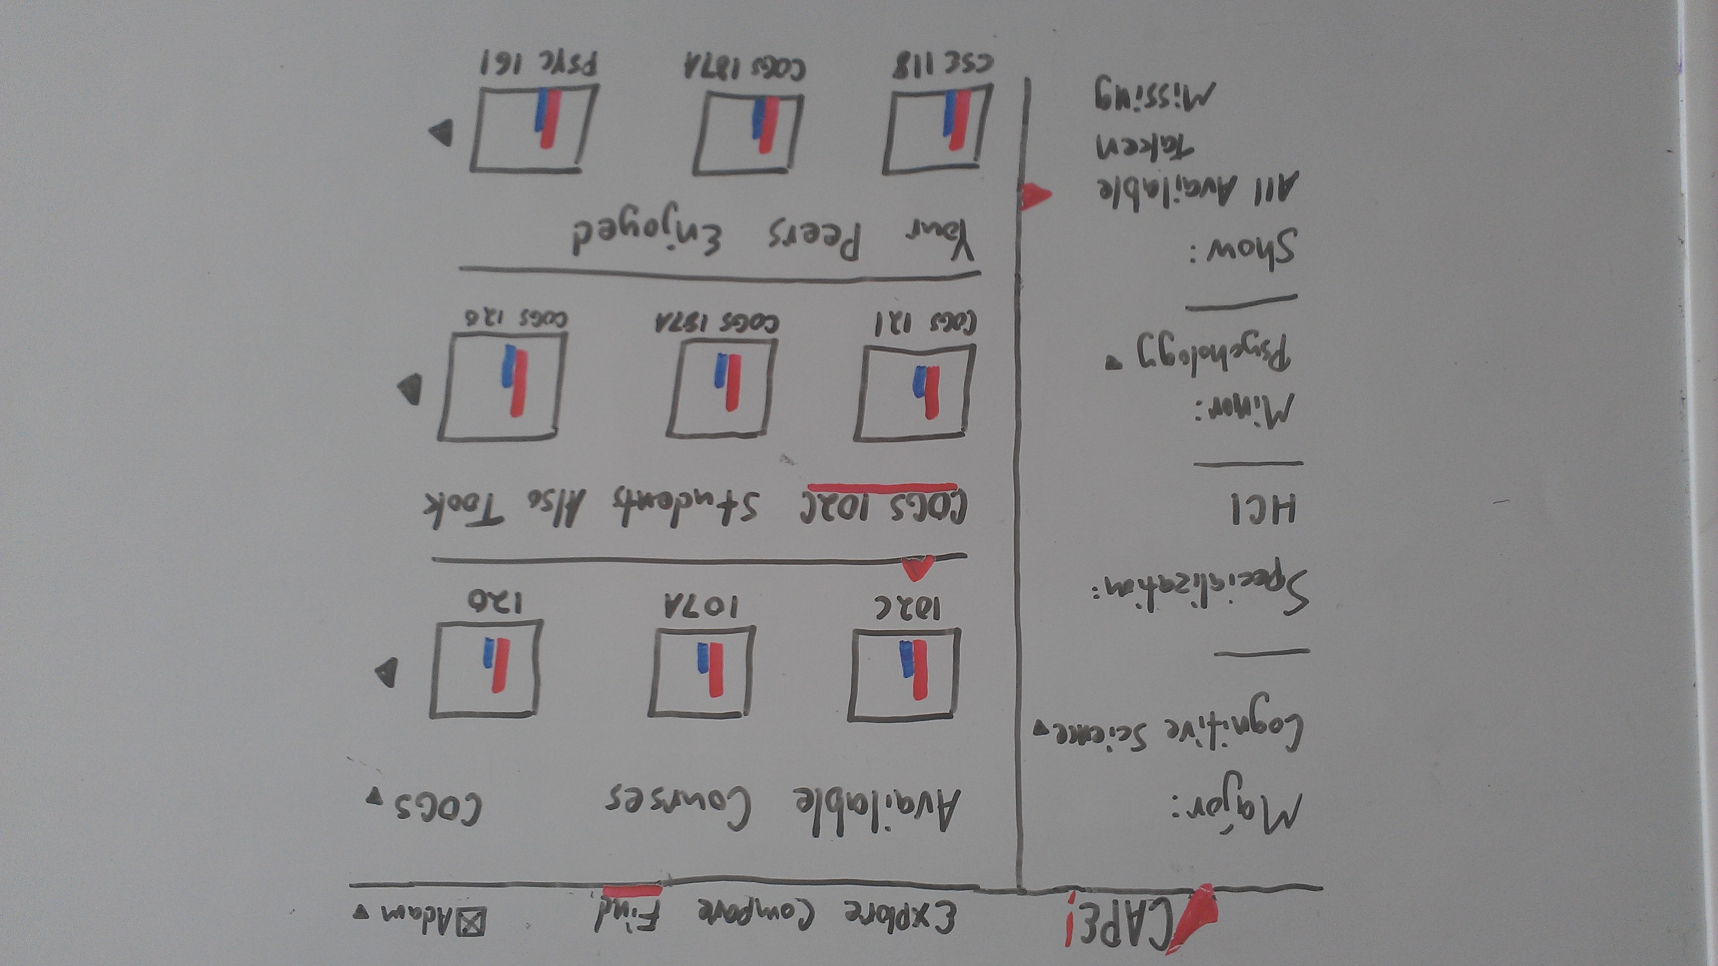 CAPE! Explore Compare Find Adam
Major:
Cognitive Science
Specialization:
HCI
Minor:
Psychology
Show:
All Available
Taken
Missing
Available Courses COGS
102C 107A 120
COGS 102C Students Also Took
COGS 121 COGS 187A COGS 120
Your Peers Enjoyed
CSE 118 COGS 187A PSYC 161